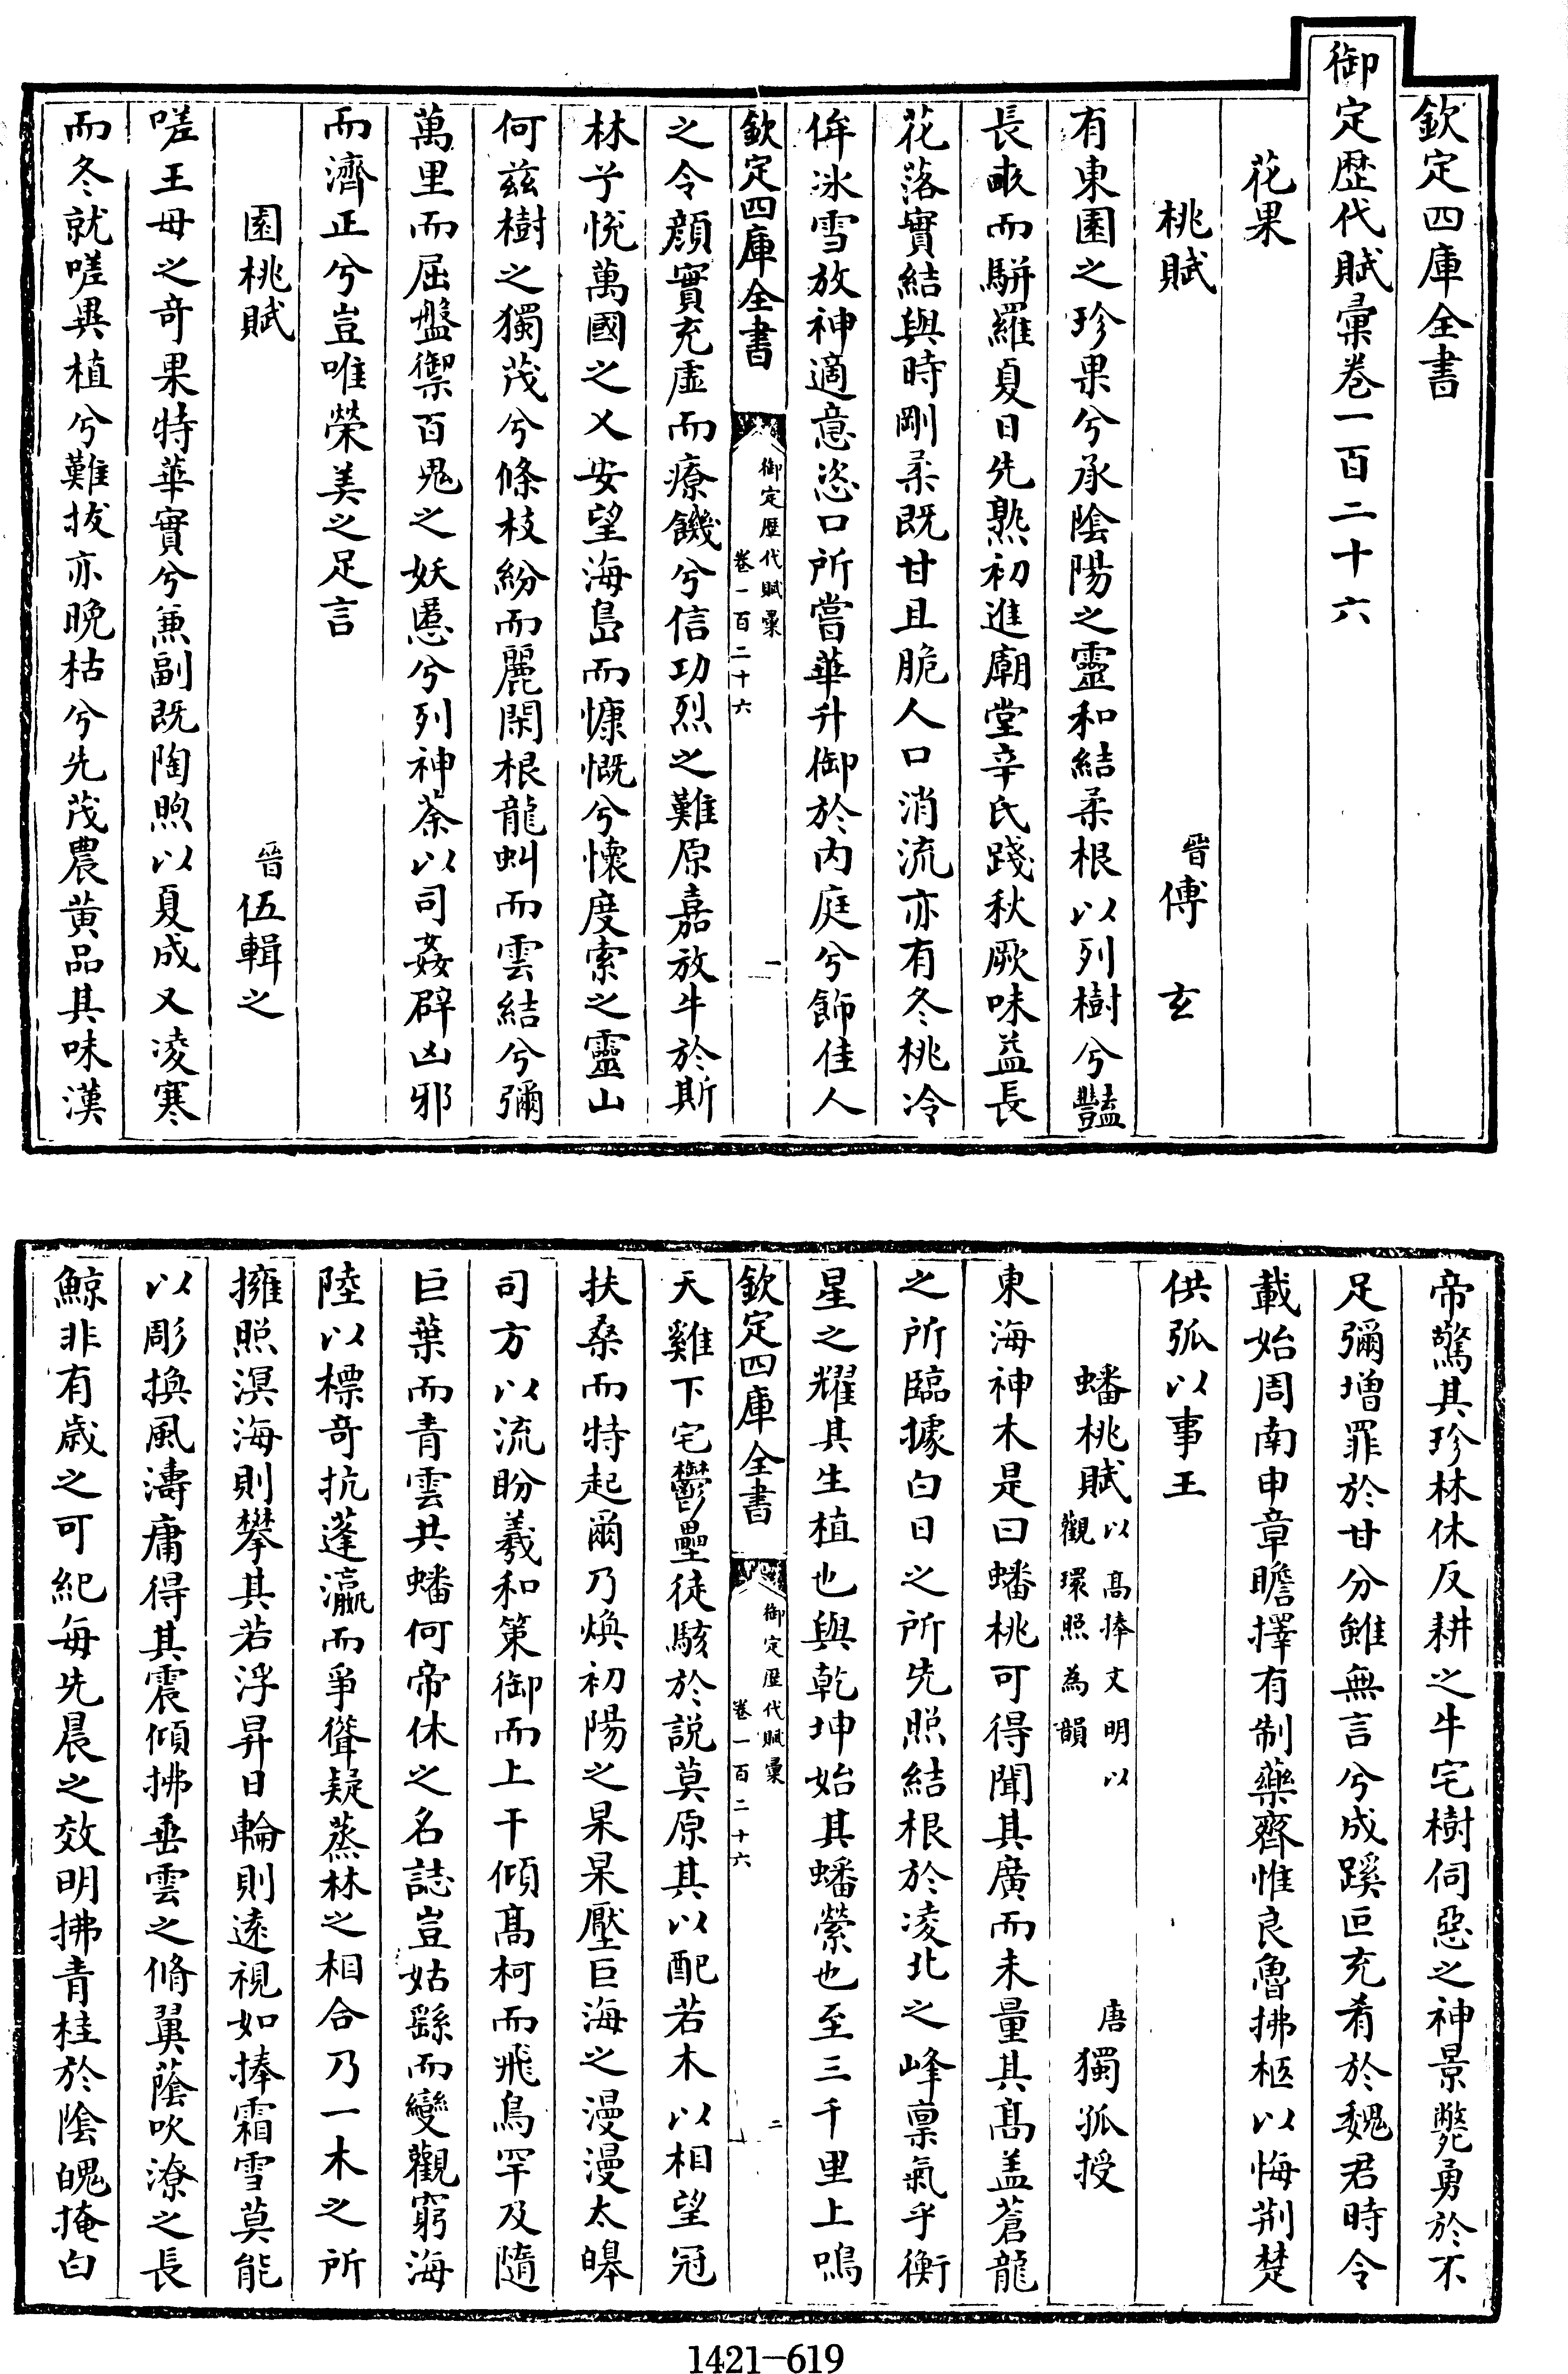 欽定四庫全書
御定歴代賦彙卷一百二十六
花果
桃賦 晉傅玄
有東園之珍果兮承陰陽之靈和結柔根以列樹兮豔
長畝而駢羅夏日先熟初進廟堂辛氏踐秋厥味益長
花落實結與時剛柔既甘且脆人口消流亦有冬桃冷
侔冰雪放神適意恣口所嘗華升御於内庭兮飾佳人
欽定四庫全書 御定歴代賦彙 卷一百二十六 一
之令顔實充虛而療饑兮信功烈之難原嘉放牛於斯
林兮悦萬國之乂安望海島而慷慨兮懷度索之靈山
何兹樹之獨茂兮條枝紛而麗閑根龍虬而雲結兮彌
萬里而屈盤禦百鬼之妖慝兮列神荼以司姦辟凶邪
而濟正兮豈唯榮美之足言
園桃賦 晉伍輯之
嗟王母之奇果特華實兮兼副既陶煦以夏成又凌寒
而冬就嗟異植兮難拔亦晚枯兮先茂農黄品其味漢
帝驚其珍林休反耕之牛宅樹伺惡之神景斃勇於不
足彌增罪於甘分雖無言兮成蹊叵充肴於魏君時令
載始周南申章瞻擇有制藥齊惟良魯拂柩以悔荆楚
供弧以事王
蟠桃賦 以高捧文明以觀環照為韻 唐獨孤授
東海神木是曰蟠桃可得聞其廣而未量其髙盖蒼龍
之所臨據白日之所先照結根於凌北之峰禀氣乎衡
星之耀其生植也與乾坤始其蟠縈也至三千里上鳴
欽定四庫全書 御定歴代賦彙 卷一百二十六 二
天雞下宅鬱壘徒駭於説莫原其以配若木以相望冠
扶桑而特起爾乃煥初陽之杲杲壓巨海之漫漫太皞
司方以流盼羲和策御而上干傾髙柯而飛鳥罕及隨
巨葉而青雲共蟠何帝休之名誌豈姑繇而變觀窮海
陸以標奇抗蓬瀛而爭聳疑蒸林之相合乃一木之所
擁照溟海則攀其若浮昇日輪則遠視如捧霜雪莫能
以彫換風濤庸得其震傾拂垂雲之脩翼蔭吹潦之長
鯨非有歲之可紀每先晨之效明拂青桂於陰魄掩白
1421-619